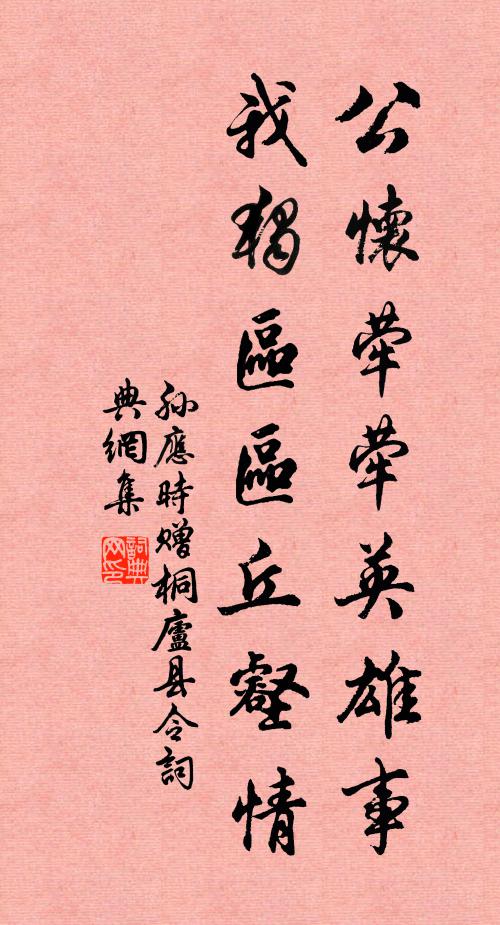 公懷犖犖英雄事
我獨區區丘壑情
孙應時赠桐廬县令詞
典網集
詞典
网